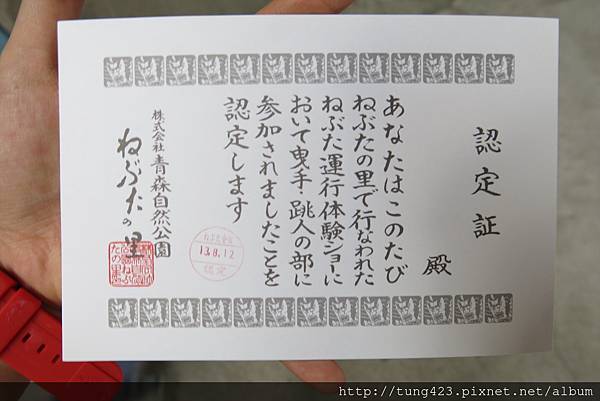 認定証
殿
あなたはこのたび
ねぶたの里で行なわれた
ねぶた運行体験ショーに
おいて曳手・跳人の部に
参加されましたことを
認定します
13.8.12
認定
株式会社 青森自然公園
ねぶたの里
http://tung423.pixnet.net/album